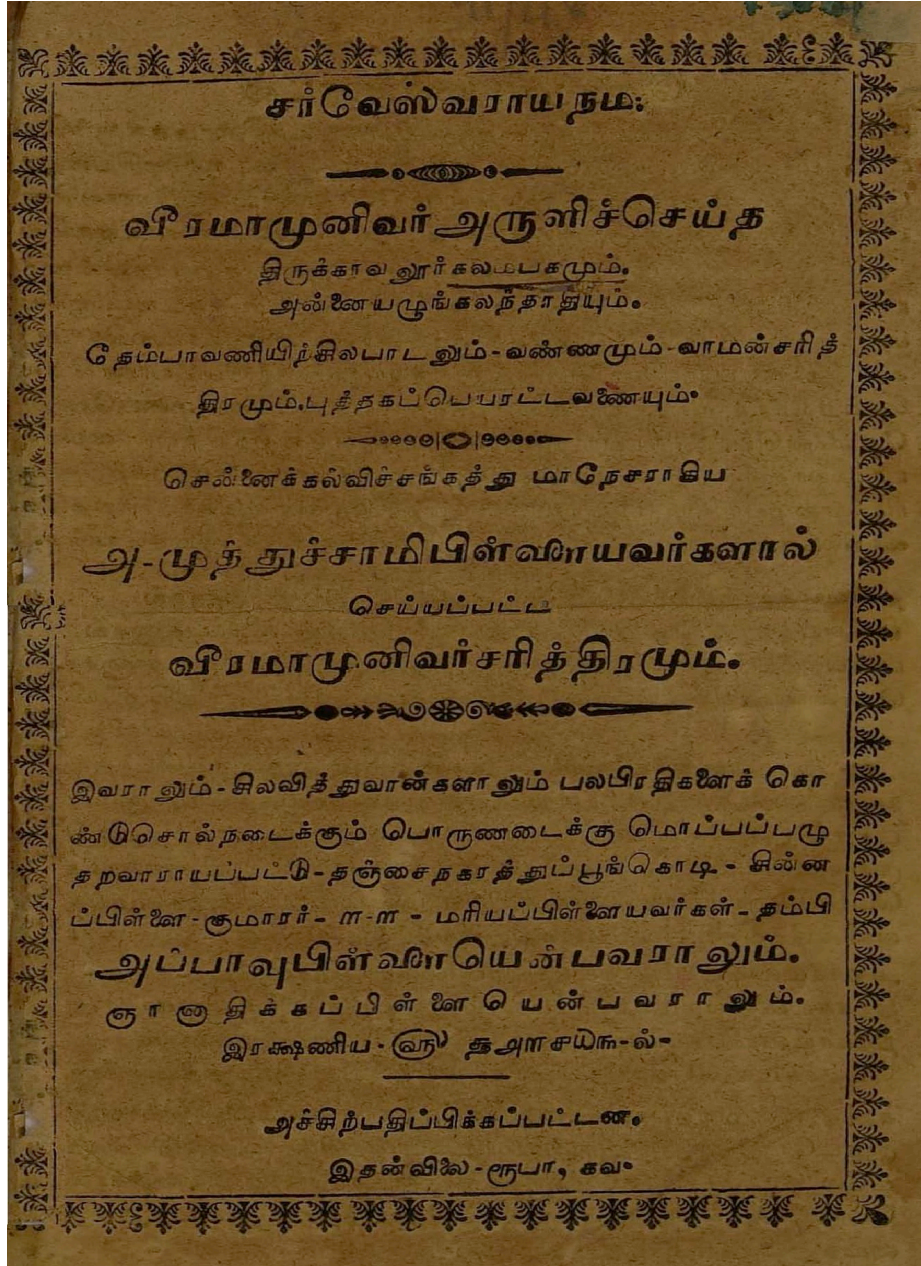 சர்வேஸ்வராயநம:
வீரமாமுனிவர்அருளிச்செய்த
திருக்காவலூர்கலம்பகமும்.
அன்னையழுங்கலந்தாதியும்.
தேம்பாவணியிற்சிலபாடலும்-வண்ணமும்-வாமன்சரித்
திரமும்.புத்தகப்பெயரட்டவணையும்.
சென்னைக்கல்விச்சங்கத்து மாநேசராகிய
அ-முத்துச்சாமிபிள்ளையவர்களால்
செய்யப்பட்ட
வீரமாமுனிவர்சரித்திரமும்.
இவராலும்-சிலவித்துவான்களாலும் பலபிரதிகளைக் கொ
ண்டுசொல்நடைக்கும் பொருணடைக்கு மொப்பப்பழு
தறவாராயப்பட்டு-தஞ்சைநகரத்துப்பூங்கொடி-சின்ன
ப்பிள்ளை-குமாரர்-ௗ-ௗ-மரியப்பிள்ளையவர்கள்-தம்பி
அப்பாவுபிள்ளையென்பவராலும்.
ஞானாதிக்கப்பிள்ளை யென்பவராலும்.
இரக்ஷணிய-௵
அச்சிற்பதிப்பிக்கப்பட்டன.
இதன்விலை-ரூபா, கவ.